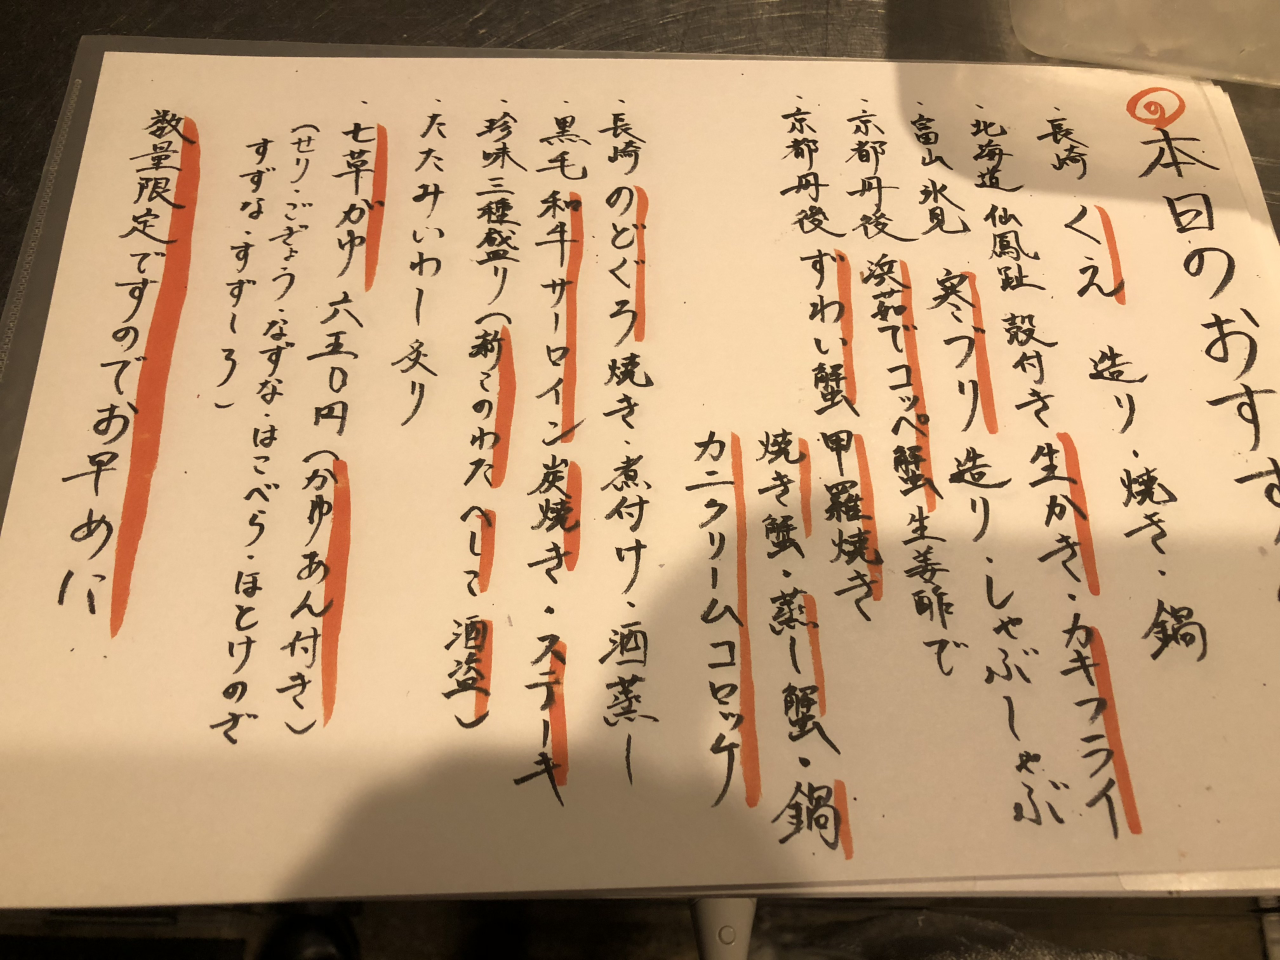 本日のおすす
・長崎 くえ 造り・焼き・鍋
・北海道 仙鳳趾 殻付き 生かき・カキフライ
・富山 氷見 寒ぶり 造り・しゃぶしゃぶ
・京都丹後 浜茹でコッペ蟹 生姜酢で
・京都丹後 ずわい蟹 甲羅焼き
焼き蟹・蒸し蟹・鍋
カニクリームコロッケ
・長崎 のどぐろ 焼き・煮付け・酒蒸し
・黒毛和牛サーロイン 炭焼き・ステーキ
・珍味三種盛り(新このわた へしこ 酒盗)
・たたみいわし 炙り
・七草がゆ 六五〇円 (かゆあん付き)
(せり・ごぎょう・なずな・はこべら・ほとけのざ
すずな・すずしろ)
数量限定ですのでお早めに